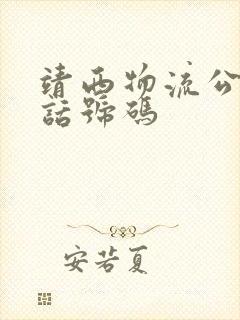 靖西物流公
話號碼
安若夏